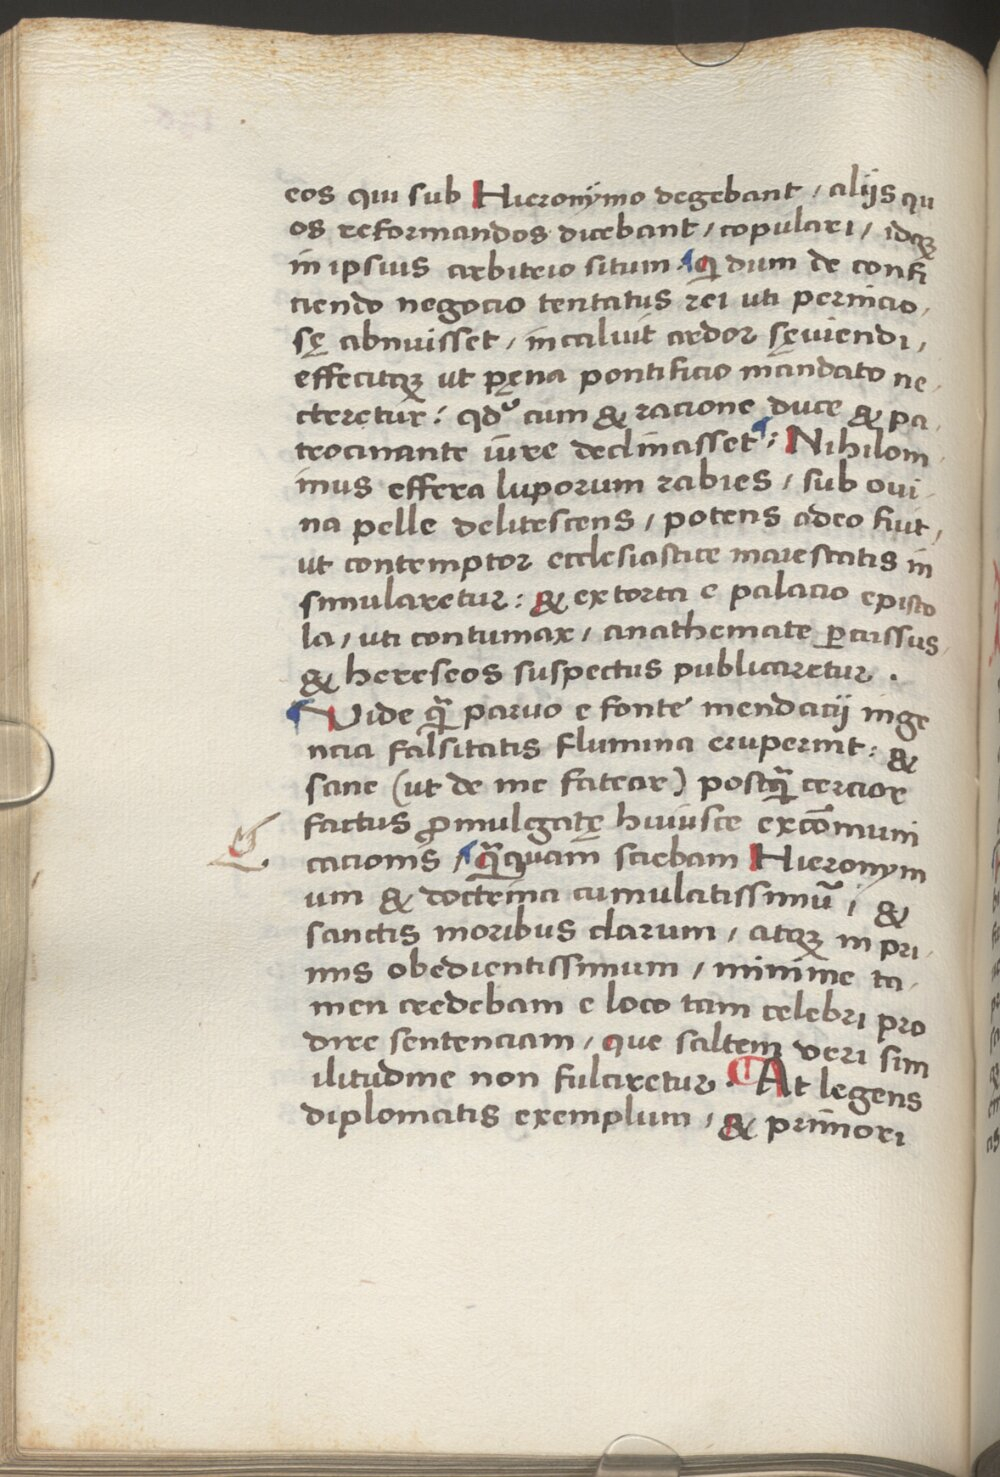 eos qui sub Hieronymo degebant / aliis qu
os reformandos dicebant / copulari / idqꝫ
in ipsius arbitrio situm. qͥ dum de confi
ciendo negocio tentatus rei uti pernicio /
sę abnuisset / incaluit ardor sęuiendi /
effecitqꝫ ut pęna pontificio mandato ne /
cteretur: qdͦ cum & racione duce & pa /
trocinante iure declinasset: Nihilom
inus effera luporum rabies / sub oui /
na pelle delitescens / potens adeo fuit /
ut contemptor ecclesiastice maiestatis in
simularetur: & extorta e palacio episto
la / uti contumax / anathemate ꝑcussus /
& hereseos suspectus publicaretur .
Vide qͣ̃ paruo e fonte mendacij inge
ncia falsitatis flumina eruperint: &
sane (ut de me fatear) postqͣ̃ cercior
factus ꝓmulgatę huiusce excōmuni
cacionis / qͣ̃quam sciebam Hieronym
um & doctrina cumulatissimū / &
sanctis moribus clarum / atqꝫ in pri /
mis obedientissimum / minime ta /
men credebam e loco tam celebri pro
dire sentenciam / que saltem veri sim
ilitudine non fulciretur. At legens
diplomatis exemplum / & primori